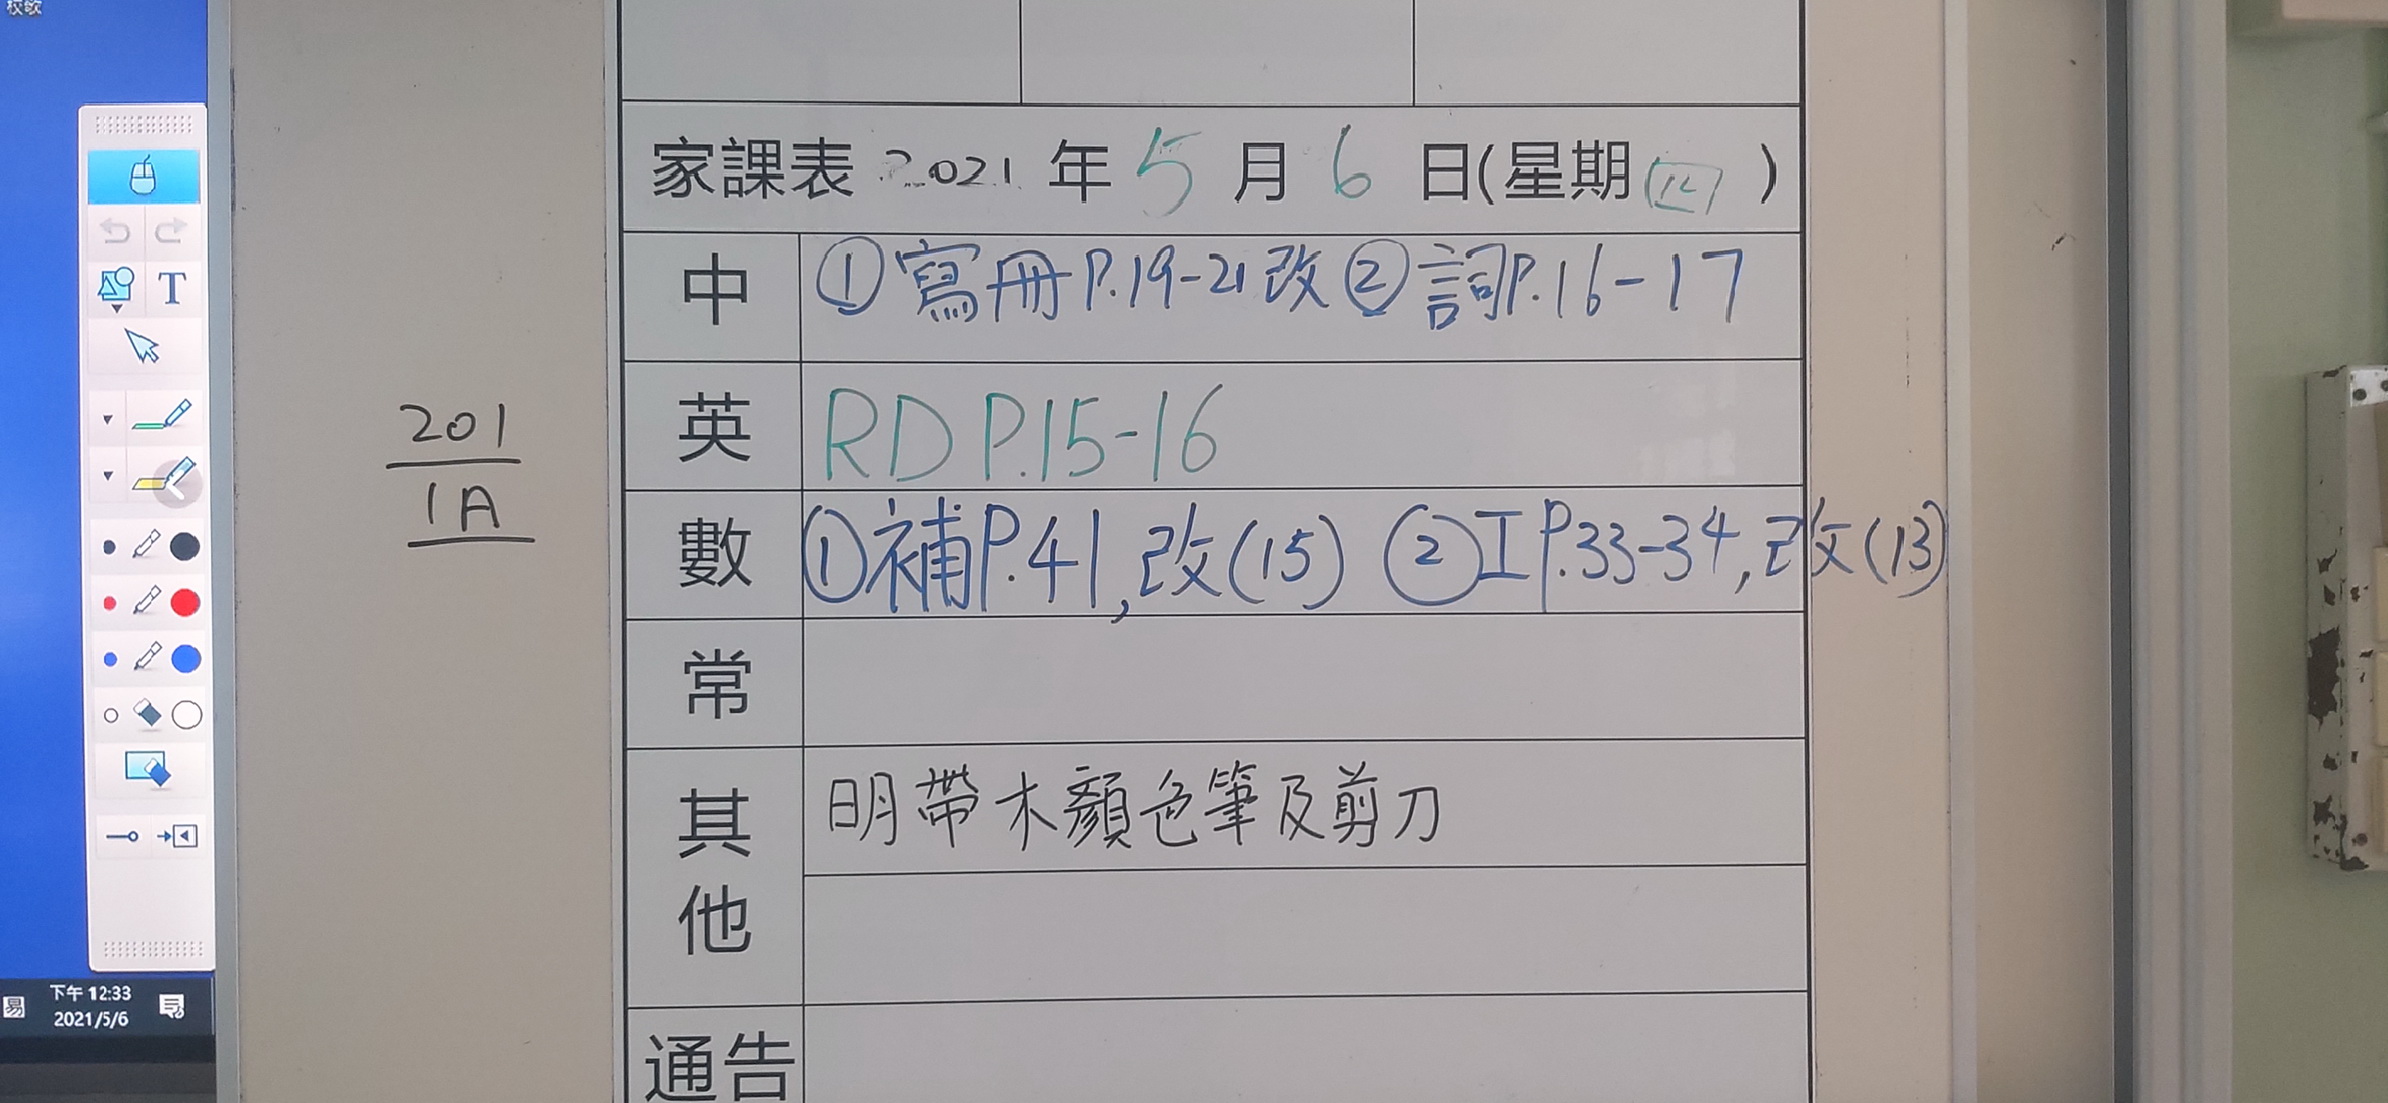 家課表 2021 年 5 月 6 日(星期四)
中 ①寫冊P.19-21改 ②詞P.16-17
英 RD P.15-16
數 ①補P.41,改(15) ②工P.33-34,改(13)
常
其他 明帶木顏色筆及剪刀
通告
201
1A
T
下午 12:33
2021/5/6
易